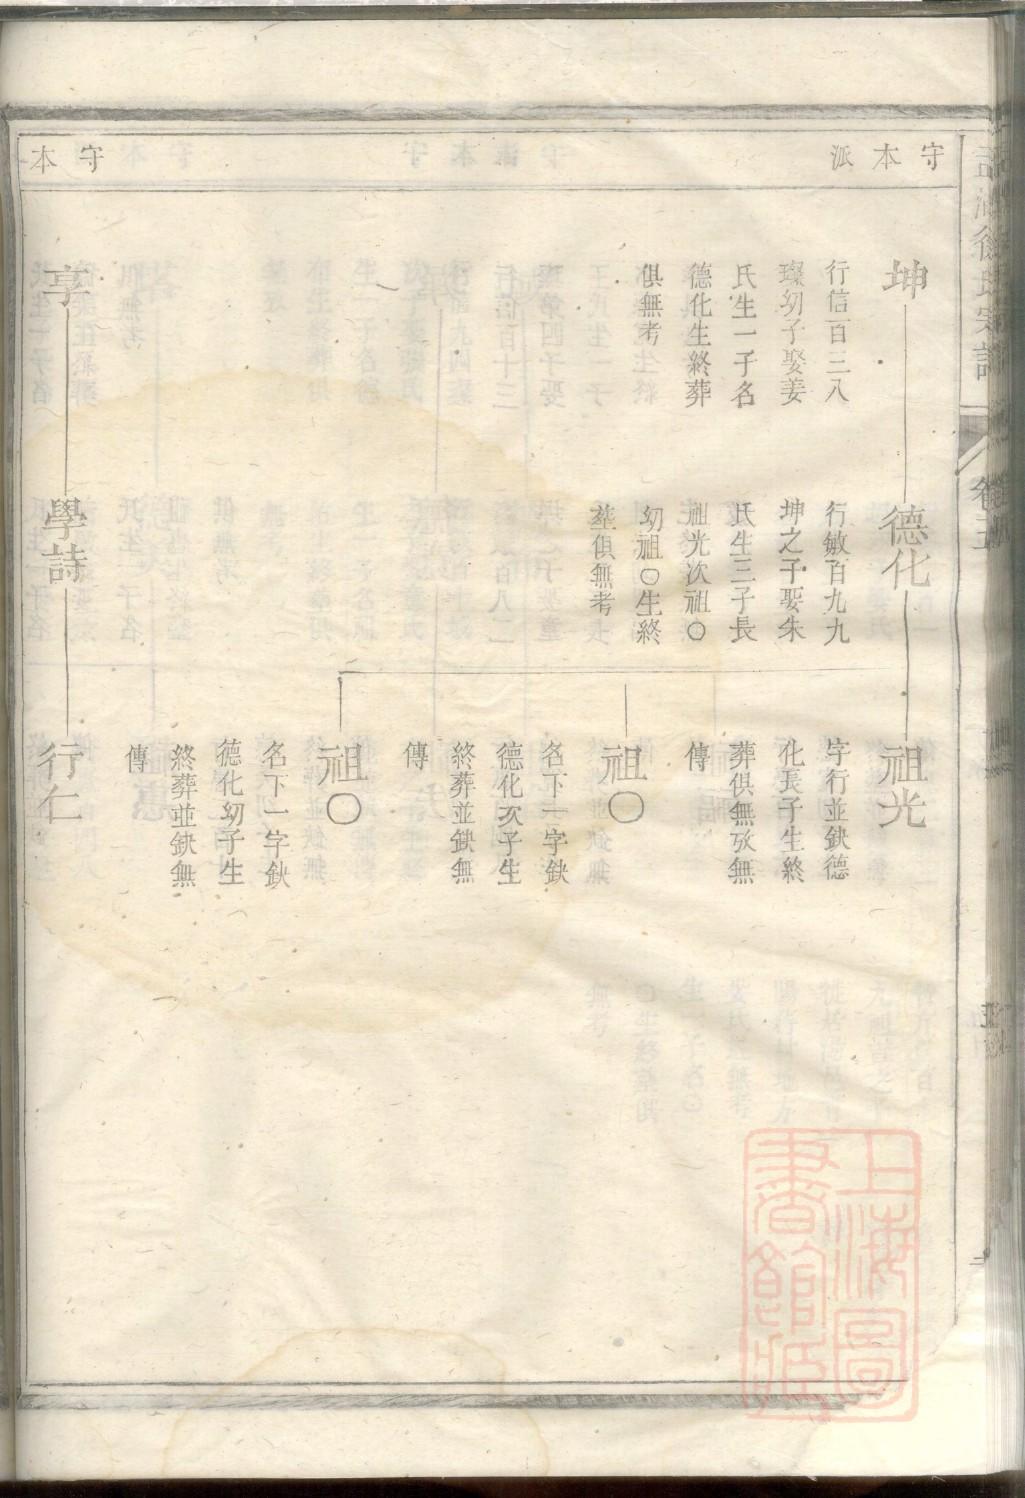 守本派
守本
坤
行信百三八
璨幼子娶姜
氏生一子名
德化生終葬
俱無考
德化
行敏百九九
坤之子娶朱
氏生三子長
祖光次祖〇
幼祖〇生終
葬俱無考
祖光
字行並鈌德
化長子生終
葬俱無攷無
傳
祖〇
名下一字鈌
德化次子生
終葬並鈌無
傳
祖〇
名下一字鈌
德化幼子生
終葬並鈌無
傳
享
學詩
行仁
徐氏宗譜
卷五
上海圖
書館藏